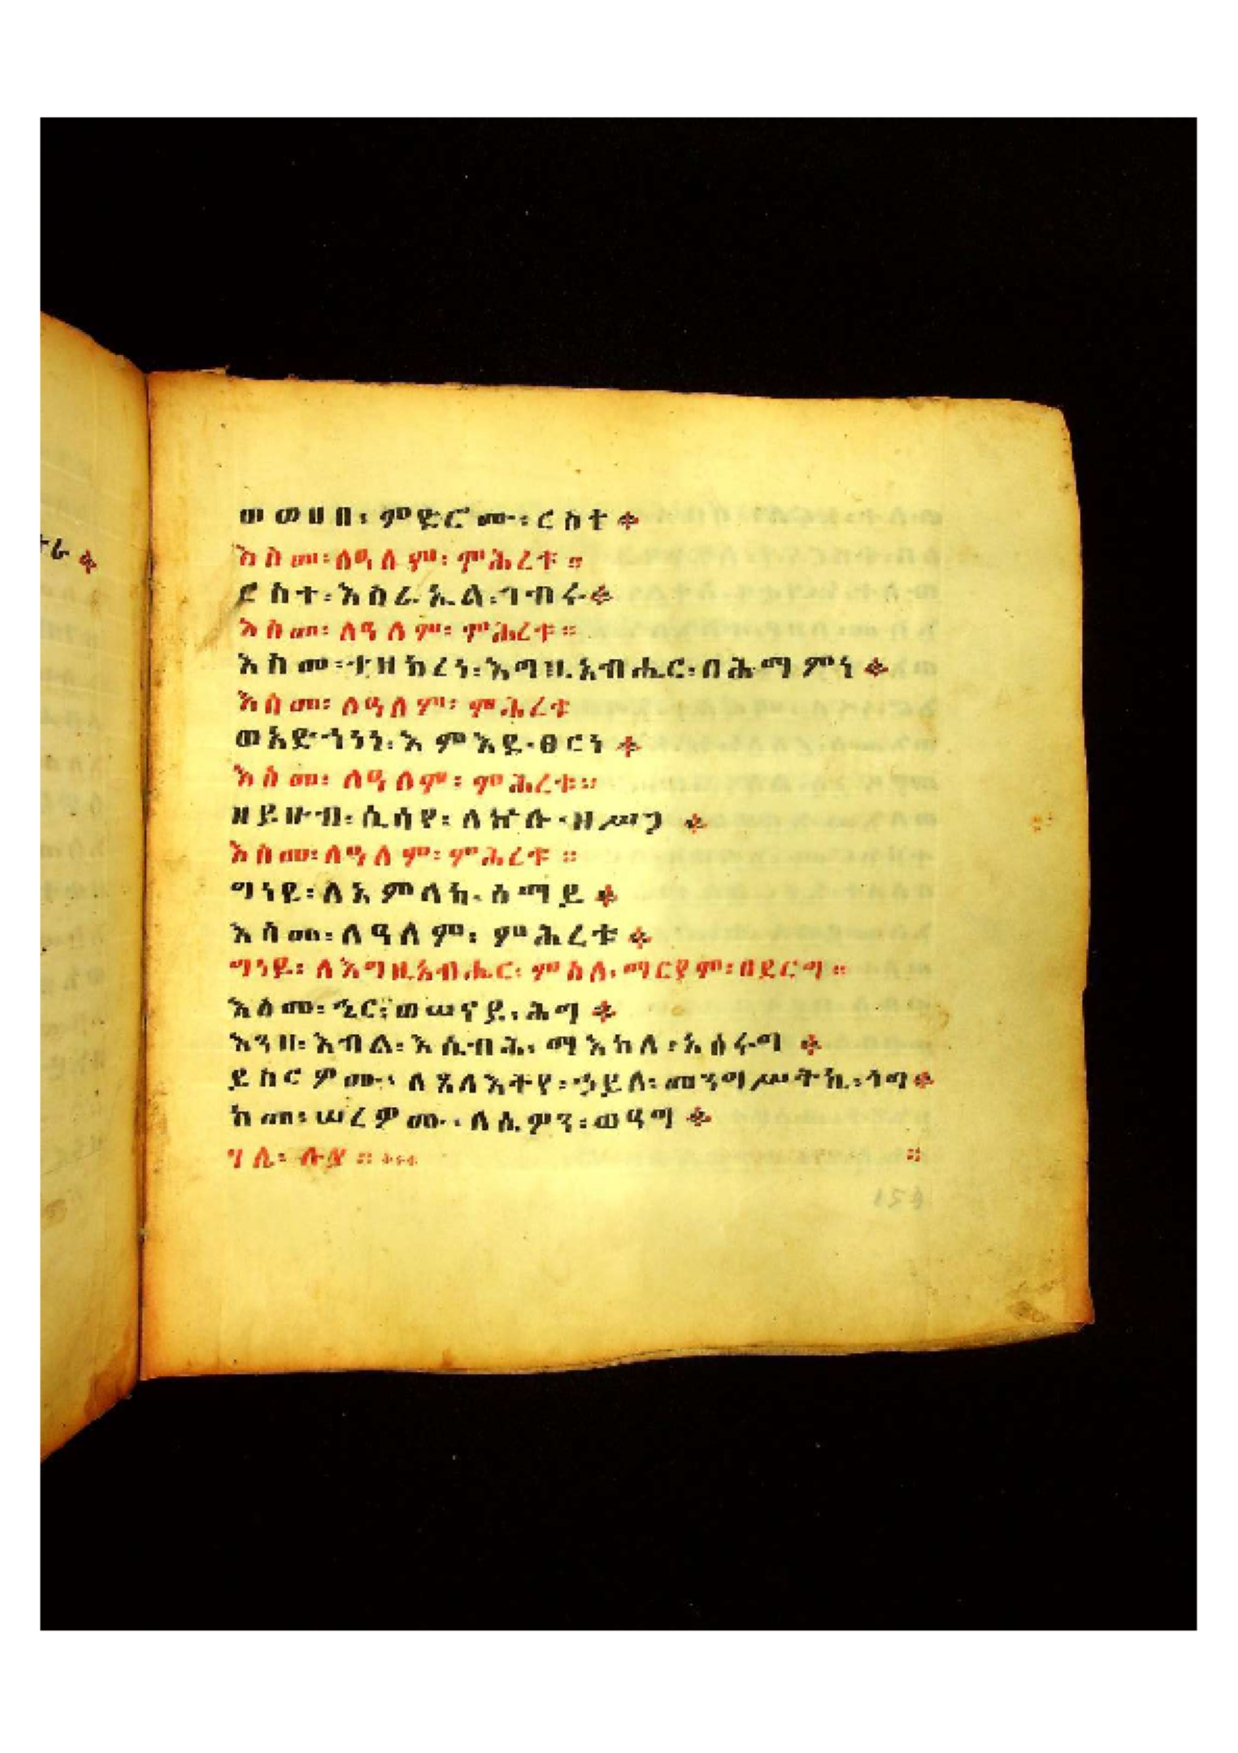 ወወሀበ፡ ምድሮሙ፡ ርስተ
እስመ፡ ለዓለም፡ ምሕረቱ።
ርስተ፡ እስራኤል፡ ገብሩ
እስመ፡ ለዓለም፡ ምሕረቱ።
እስመ፡ ተዘከረነ፡ እግዚአብሔር፡ በሕማምነ
እስመ፡ ለዓለም፡ ምሕረቱ
ወአድኀነነ፡ እምእደ፡ ፀርነ
እስመ፡ ለዓለም፡ ምሕረቱ።
ዘይሁብ፡ ሲሳየ፡ ለኵሉ፡ ዘሥጋ
እስመ፡ ለዓለም፡ ምሕረቱ።
ግነዩ፡ ለአምላከ፡ ሰማይ
እስመ፡ ለዓለም፡ ምሕረቱ
ግነዩ፡ ለእግዚአብሔር፡ ምስለ፡ ማርያም፡ በደርግ።
እስመ፡ ኄር፡ ወሠናይ፡ ሕግ
እንዘ፡ እብል፡ እሴብሕ፡ ማእከለ፡
ለጸላእትየ፡ ኃይለ፡ መንግሥትኪ፡
ከመ፡ ሠረዎሙ፡ ለሴዎን፡ ወዓግ
ሃሌ፡ ሉያ።